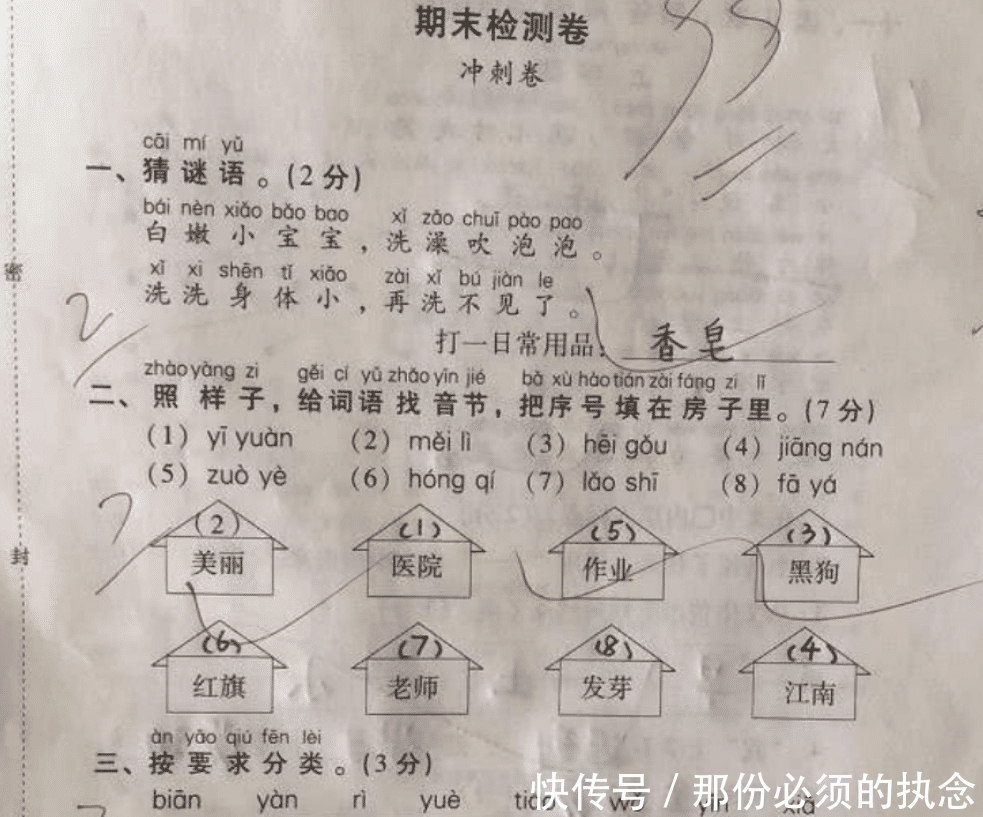 期末检测卷
冲刺卷
cāi mí yǔ
一、猜谜语。(2分)
bái nèn xiǎo bǎo bao xǐ zǎo chuī pào pao
白嫩小宝宝，洗澡吹泡泡。
xǐ xi shēn tǐ xiǎo zài xǐ bú jiàn le
洗洗身体小，再洗不见了。
密
2
打一日常用品：香皂
zhào yàng zi gěi cí yǔ zhǎo yīn jié bǎ xù hào tián zài fáng zi lǐ
二、照样子，给词语找音节，把序号填在房子里。(7分)
(1) yī yuàn (2) měi lì (3) hēi gǒu (4) jiāng nán
(5) zuò yè (6) hóng qí (7) lǎo shī (8) fā yá
7
(2) (1) (5) (3)
封
美丽 医院 作业 黑狗
(6) (7) (8) (4)
红旗 老师 发芽 江南
àn yāo qiú fēn lèi
三、按要求分类。(3分)
biān yàn rì yuè
快传号 / 那份必须的执念